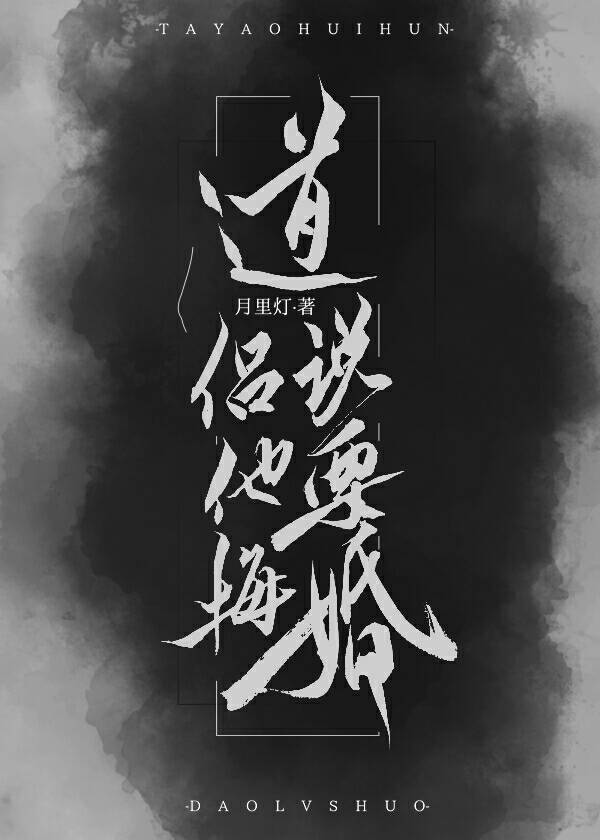 -TAYAOHUIHUN-
道
月里灯·著
侣说
他要
悔婚
-DAOLVSHUO-